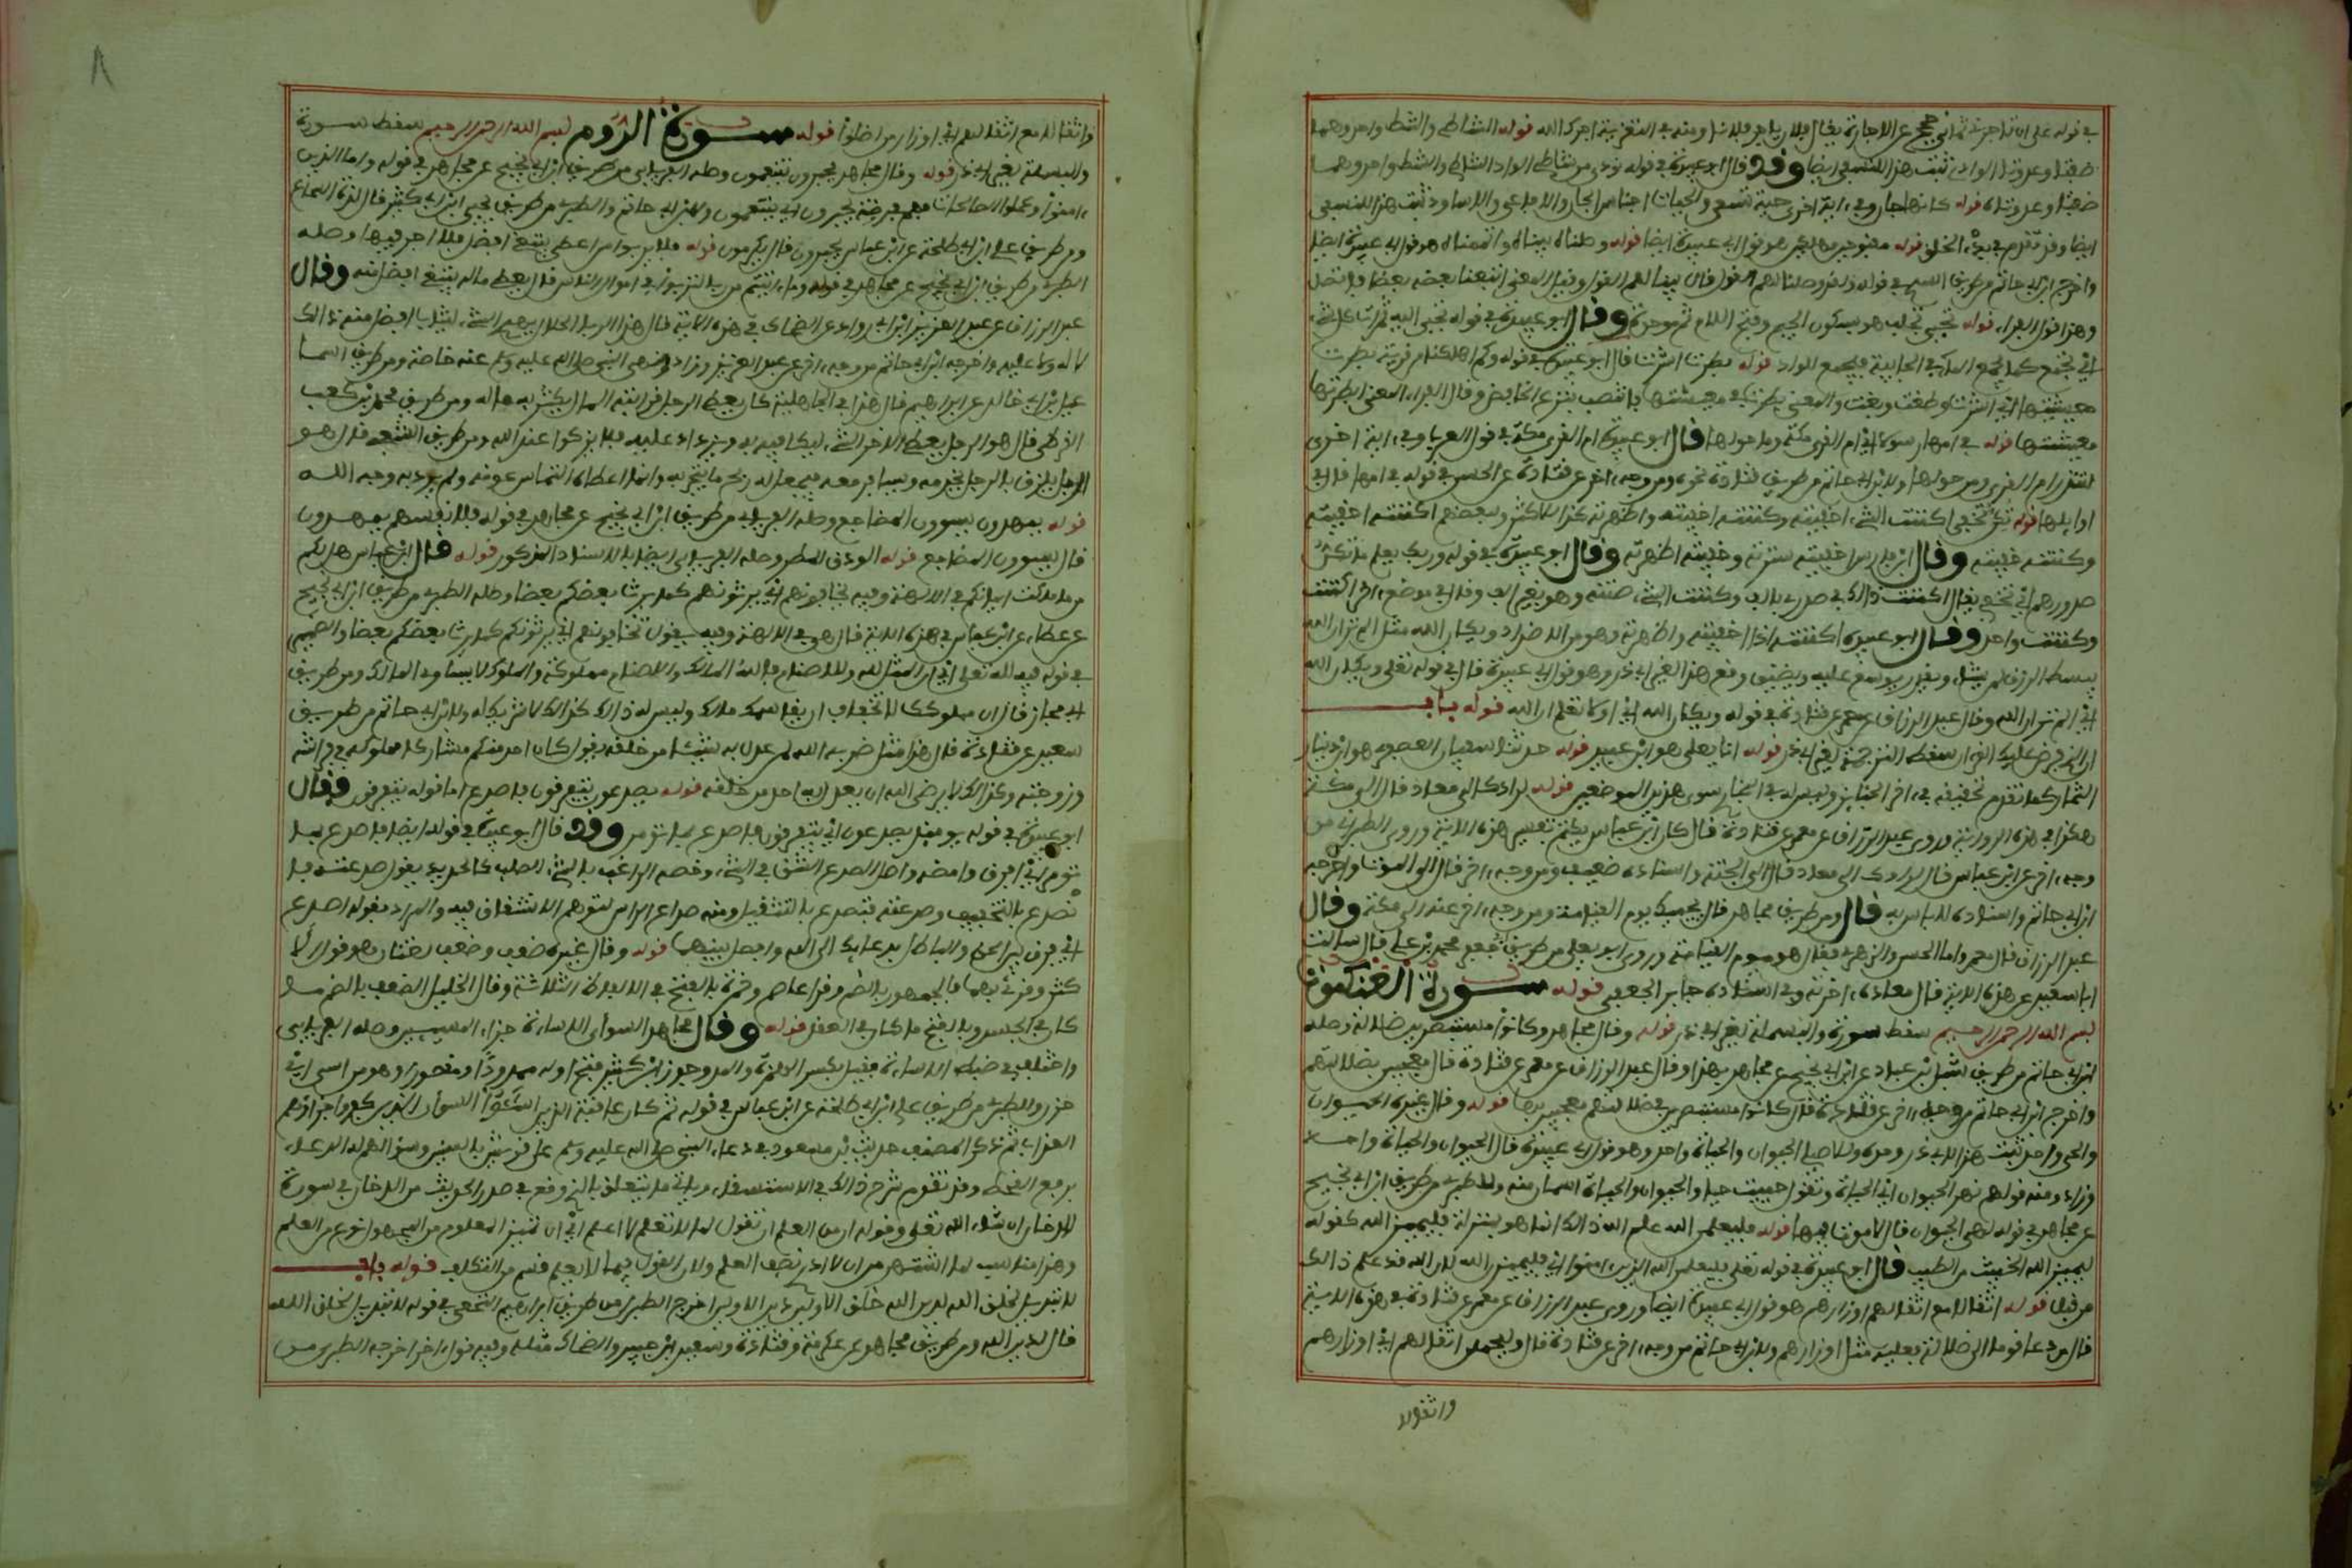 في قوله على ان تاجرني ثماني حجج من الاجارة يقال فلان ياجر فلانا ومنه في التعزية اجرك الله قوله الشاطئ والشط واحد وهما
ضفتا وعدوتا الوادي ثبت هذا للنسفي ايضا وقد قال ابو عبيدة في قوله نودي من شاطئ الواد الشاطئ والشط واحد وهما
ضفتا وعدوتاه قوله كانها جان وفي ءاية اخرى حية تسعى والحيات اجناس الجان والافاعي والاساود ثبت هذا للنسفي
ايضا وقد تقدم في بدء الخلق قوله مقبوحين مهلكين هو قول ابي عبيدة ايضا قوله وصلنا بيناه واتممناه هو قول ابي عبيدة ايضا
واخرج ابن ابي حاتم من طريق السدي في قوله ولقد وصلنا لهم القول قال بينا لهم القول وقيل المعنى اتبعنا بعضه بعضا فاتصل
وهذا قول الفراء قوله تجبى تجلب هو بسكون الجيم وفتح اللام ثم موحدة وقال ابو عبيدة في قوله تجبى اليه ثمرات كل شيء
اي تجمع كما يجمع الماء في الجابية فيجمع الوارد قوله بطرت اشرت قال ابو عبيدة في قوله وكم اهلكنا من قرية بطرت
معيشتها اي اشرت وطغت وبغت والمعنى بطرت في معيشتها فانتصب بنزع الخافض وقال الفراء المعنى ابطرتها
معيشتها قوله في امها رسولا اي ام القرى مكة وما حولها قال ابو عبيدة ام القرى مكة في قول العرب وفي ءاية اخرى
لتنذر ام القرى ومن حولها ولابن ابي حاتم من طريق قتادة نحوه ومن وجه ءاخر عن قتادة عن الحسن في قوله في امها قال في
اوايلها قوله تكن تخفي اكننت الشيء اخفيته وكننته اخفيته واظهرته كذا للاكثر ولبعضهم اكننته اخفيته
وكننته خفيته وقال ابن فارس اخفيته سترته وخفيته اظهرته وقال ابو عبيدة في قوله وربك يعلم ما تكن
صدورهم اي تخفي يقال اكننت ذالك في صدري بالف وكننت الشيء صنته وهو بغير الف وقال في موضع ءاخر اكننت
وكننت واحد وقال ابو عبيدة اكننته اذا اخفيته واظهرته وهو من الاضداد ويكان الله مثل الم تر ان الله
يبسط الرزق لمن يشاء ويقدر يوسع عليه ويضيق وقع هذا لغير ابي ذر وهو قول ابي عبيدة قال في قوله تعلى ويكان الله
اي الم تر ان الله وقال عبد الرزاق عن معمر عن قتادة في قوله ويكان الله اي اولا تعلم ان الله قوله باب
ان الذي فرض عليك القران سقطت الترجمة لغير ابي ذر قوله انا يعلى هو ابن عبيد قوله حدثنا سفيان العصفري هو ابن دينار
التمار كما تقدم تحقيقه في ءاخر الجنايز وليس له في البخاري سوى هذين الموضعين قوله لرادك الى معاد قال الى مكة
هكذا في هذه الرواية وروى عبد الرزاق عن معمر عن قتادة قال كان ابن عباس يكتم تفسير هذه الاية وروى الطبري من
وجه ءاخر عن ابن عباس قال لرادك الى معاد قال الى الجنة واسناده ضعيف ومن وجه ءاخر قال الى الموت واخرجه
ابن ابي حاتم واسناده لا باس به قال ومن طريق مجاهد قال يحييك يوم القيامة ومن وجه ءاخر عنه الى مكة وقال
عبد الرزاق قال معمر واما الحسن والزهري فقالا هو يوم القيامة وروى ابو يعلى من طريق ابي جعفر محمد بن علي قال سالت
ابا سعيد عن هذه الاية فقال معاده ءاخرته وفي اسناده جابر الجعفي قوله سورة العنكبوت
بسم الله الرحمن الرحيم سقط سورة والبسملة لغير ابي ذر قوله وقال مجاهد وكانوا مستبصرين ضلالة وصله
ابن ابي حاتم من طريق شبل بن عباد عن ابن ابي نجيح عن مجاهد بهذا وقال عبد الرزاق عن معمر عن قتادة قال معجبين بضلالتهم
واخرج ابن ابي حاتم من وجه ءاخر عن قتادة قال كانوا مستبصرين في ضلالتهم معجبين بها قوله وقال غيره الحيوان
والحي واحد ثبت هذا لابي ذر وحده وللاصيلي الحيوان والحياة واحد وهو قول ابي عبيدة قال الحيوان والحياة واحد
وزاد ومنه قولهم نهر الحيوان اي الحياة وتقول حييت حيا والحيوان والحياة اسمان منه وللطبري من طريق ابن ابي نجيح
عن مجاهد في قوله لهي الحيوان قال لا موت فيها قوله فليعلمن الله علم الله ذالك انما هو بمنزلة فليميز الله كقوله
ليميز الله الخبيث من الطيب قال ابو عبيدة في قوله تعلى فليعلمن الله الذين ءامنوا اي فليميزن الله لان الله قد علم ذالك
من قبل قوله اثقالا مع اثقالهم اوزارهم هو قول ابي عبيدة ايضا وروى عبد الرزاق عن معمر عن قتادة في هذه الاية
قال من دعا قوما الى ضلالة فعليه مثل اوزارهم ولابن ابي حاتم من وجه ءاخر عن قتادة قال وليحملن اثقالهم اي اوزارهم
واثقالا
واثقالا مع اثقالهم اي اوزار من اضلوا قوله سورة الروم بسم الله الرحمن الرحيم سقط سورة
والبسملة لغير ابي ذر قوله وقال مجاهد يحبرون ينعمون وصله الفريابي من طريق ابن ابي نجيح عن مجاهد في قوله واما الذين
ءامنوا وعملوا الصالحات فهم في روضة يحبرون اي ينعمون ولابن ابي حاتم والطبري من طريق يحيى ابن ابي كثير قال لذة السماع
ومن طريق علي ابن ابي طلحة عن ابن عباس يحبرون قال يكرمون قوله فلا يربوا من اعطى يبتغي افضل فلا اجر فيها وصله
الطبري من طريق ابن ابي نجيح عن مجاهد في قوله وما ءاتيتم من ربا لتربوا في اموال الناس قال يعطي ماله يبتغي افضل منه وقال
عبد الرزاق عن عبد العزيز ابن ابي رواد عن الضحاك في هذه الاية قال هذا الربا الحلال يهدي الشيء ليثاب افضل منه ذالك
لا له ولا عليه واخرجه ابن ابي حاتم من وجه ءاخر عن عبد العزيز وزاد ونهى النبي صلى الله عليه وسلم عنه خاصة ومن طريق اسما
عيل بن ابي خالد عن ابراهيم قال هذا في الجاهلية كان يعطي الرجل قرابته المال يكثر به ماله ومن طريق محمد بن كعب
القرظي قال هو الرجل يعطي الاخر الشيء ليكافيه به ويزداد عليه فلا يربوا عند الله ومن طريق الشعبي قال هو
الرجل يلزق بالرجل يخدمه ويسافر معه فيجعل له ربح ما يتجر به وانما اعطاه التماس عونه ولم يرد به وجه الله
قوله يمهدون يسوون المضاجع وصله الفريابي من طريق ابن ابي نجيح عن مجاهد في قوله فلانفسهم يمهدون
قال يسوون المضاجع قوله الودق المطر وصله الفريابي ايضا بالاسناد المذكور قوله قال ابن عباس هل لكم
من ما ملكت ايمانكم في الالهة وفيه تخافونهم اي يرثونهم كما يرث بعضكم بعضا وصله الطبري من طريق ابن ابي نجيح
عن عطاء عن ابن عباس في هذه الاية قال هي في الالهة وفيه يقول تخافونهم ان يرثوكم كما يرث بعضكم بعضا والضمير
في قوله فيه لله تعلى اي ان المثل لله وللاصنام فالله المالك والاصنام مملوكة والمملوك لا يساوي المالك ومن طريق
ابي مجلز قال ان مملوكك لا تخاف ان يقاسمك مالك وليس له ذالك كذالك الله لا شريك له ولابن ابي حاتم من طريق
سعيد عن قتادة قال هذا مثل ضربه الله لمن عدل به شيئا من خلقه يقول اكان احد منكم مشاركا مملوكه في فراشه
وزوجته وكذالك لا يرضى الله ان يعدل به احد من خلقه قوله يصدعون يتفرقون فاصدع اما قوله يتفرقون فقال
ابو عبيدة في قوله يومئذ يصدعون اي يتفرقون فاصدع بما تؤمر وقد قال ابو عبيدة في قوله ايضا فاصدع بما
تومر اي افرق وامضه واصل الصدع الشق في الشيء وخصه الراغب بالشيء الصلب كالحديد يقول صدعته فا
نصدع بالتخفيف وصدعته فتصدع بالتثقيل ومنه صداع الراس لتوهم الانشقاق فيه والمراد بقوله اصدع
اي افرق بين الحق والباطل بدعايك الى الله وافصل بينهما قوله وقال غيره ضعف وضعف لغتان هو قول الا
كثر وقرئ بهما فالجمهور بالضم وقرا عاصم وحمزة بالفتح في الالفاظ الثلاثة وقال الخليل الضعف بالضم ما
كان في الجسد وبالفتح ما كان في العقل قوله وقال مجاهد السوأى الاساءة جزاء المسيين وصله الفريابي
واختلف في ضبط الاساءة فقيل بكسر الهمزة والمد وجوز ابن كثير فتح اوله ممدودا ومقصورا وهو من اسى اي
حزن وللطبري من طريق علي ابن ابي طلحة عن ابن عباس في قوله ثم كان عاقبة الذين اساءوا السوأى الذين كفروا جزاؤهم
العذاب ثم ذكر المصنف حديث ابن مسعود في دعاء النبي صلى الله عليه وسلم على قريش بالسنين وسؤالهم له الدعاء
برفع القحط وقد تقدم شرح ذالك في الاستسقاء وياتي ما يتعلق بالذي وقع في صدر الحديث من الدخان في سورة
الدخان ان شاء الله تعلى وقوله ان من العلم ان تقول لما لا تعلم لا اعلم اي ان تمييز المعلوم من المجهول نوع من العلم
وهذا مناسب لما اشتهر من ان لا ادري نصف العلم ولان القول فيما لا يعلم قسم من التكلف قوله باب
لا تبديل لخلق الله لدين الله خلق الاولين دين الاولين اخرج الطبري من طريق ابراهيم النخعي في قوله لا تبديل لخلق الله
قال لدين الله ومن طريق مجاهد وعكرمة وقتادة وسعيد ابن جبير والضحاك مثله وفيه قول ءاخر اخرجه الطبري من